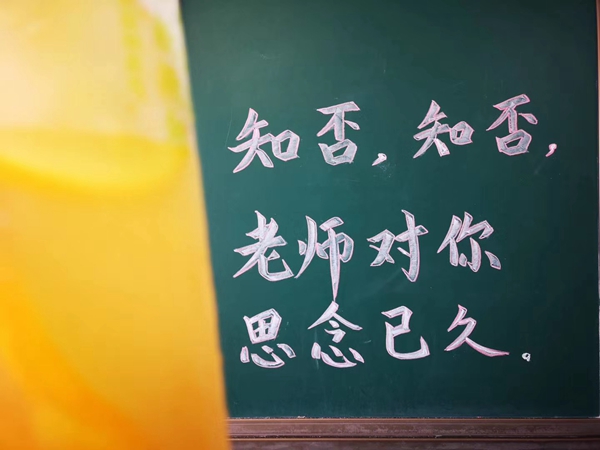 知否，知否，
老师对你
思念已久。